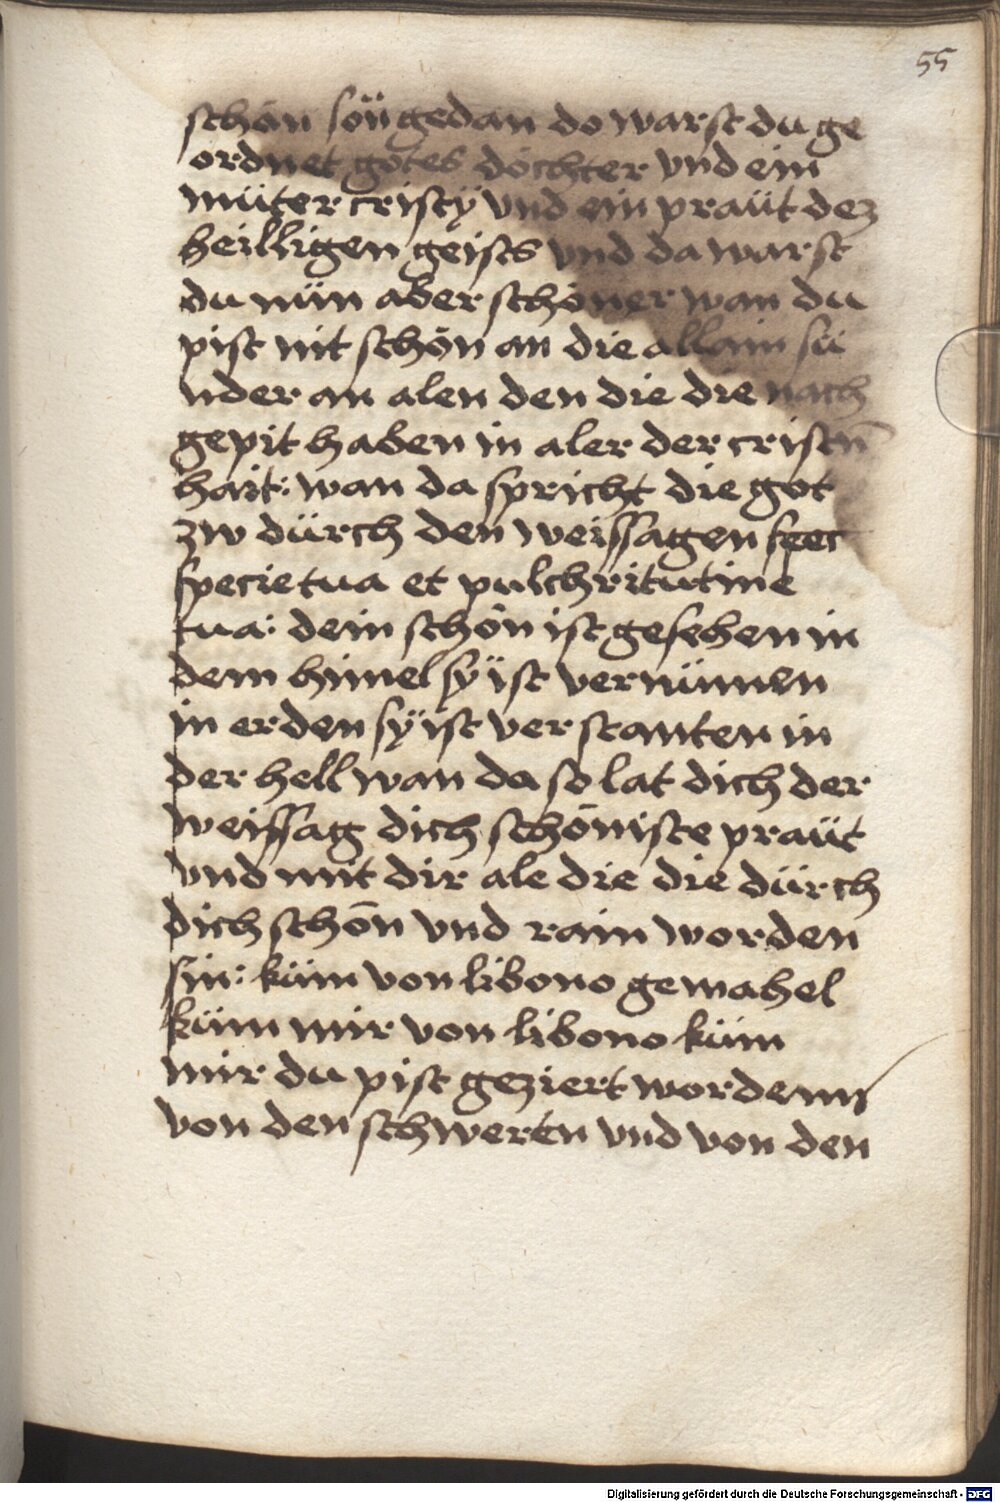 55
schön söü gedan do warst du ge
ordnet gotes döchter vnd ein
müter cristÿ vnd ein praüt dez
heilligen geists vnd da warst
du nün aber schöner wan du
pist nit schön an die allain sü
nder an alen den die die nach
gepit haben in aler der cristn̄
hait: wan da spricht die got
zw dürch den weissagen
specie tua et pulchritutine
tua: dein schön ist gesehen in
dem himel sÿ ist vernümen
in erden sÿ ist verstanten in
der hell wan da so lat dich der
weissag dich schöniste praüt
vnd mit dir ale die die dürch
dich schön vnd rain worden
sin: küm von libono gemahel
küm mir von libono küm
mir du pist geziert wordenn
von den schweren vnd von den
Digitalisierung gefördert durch die Deutsche Forschungsgemeinschaft - DFG